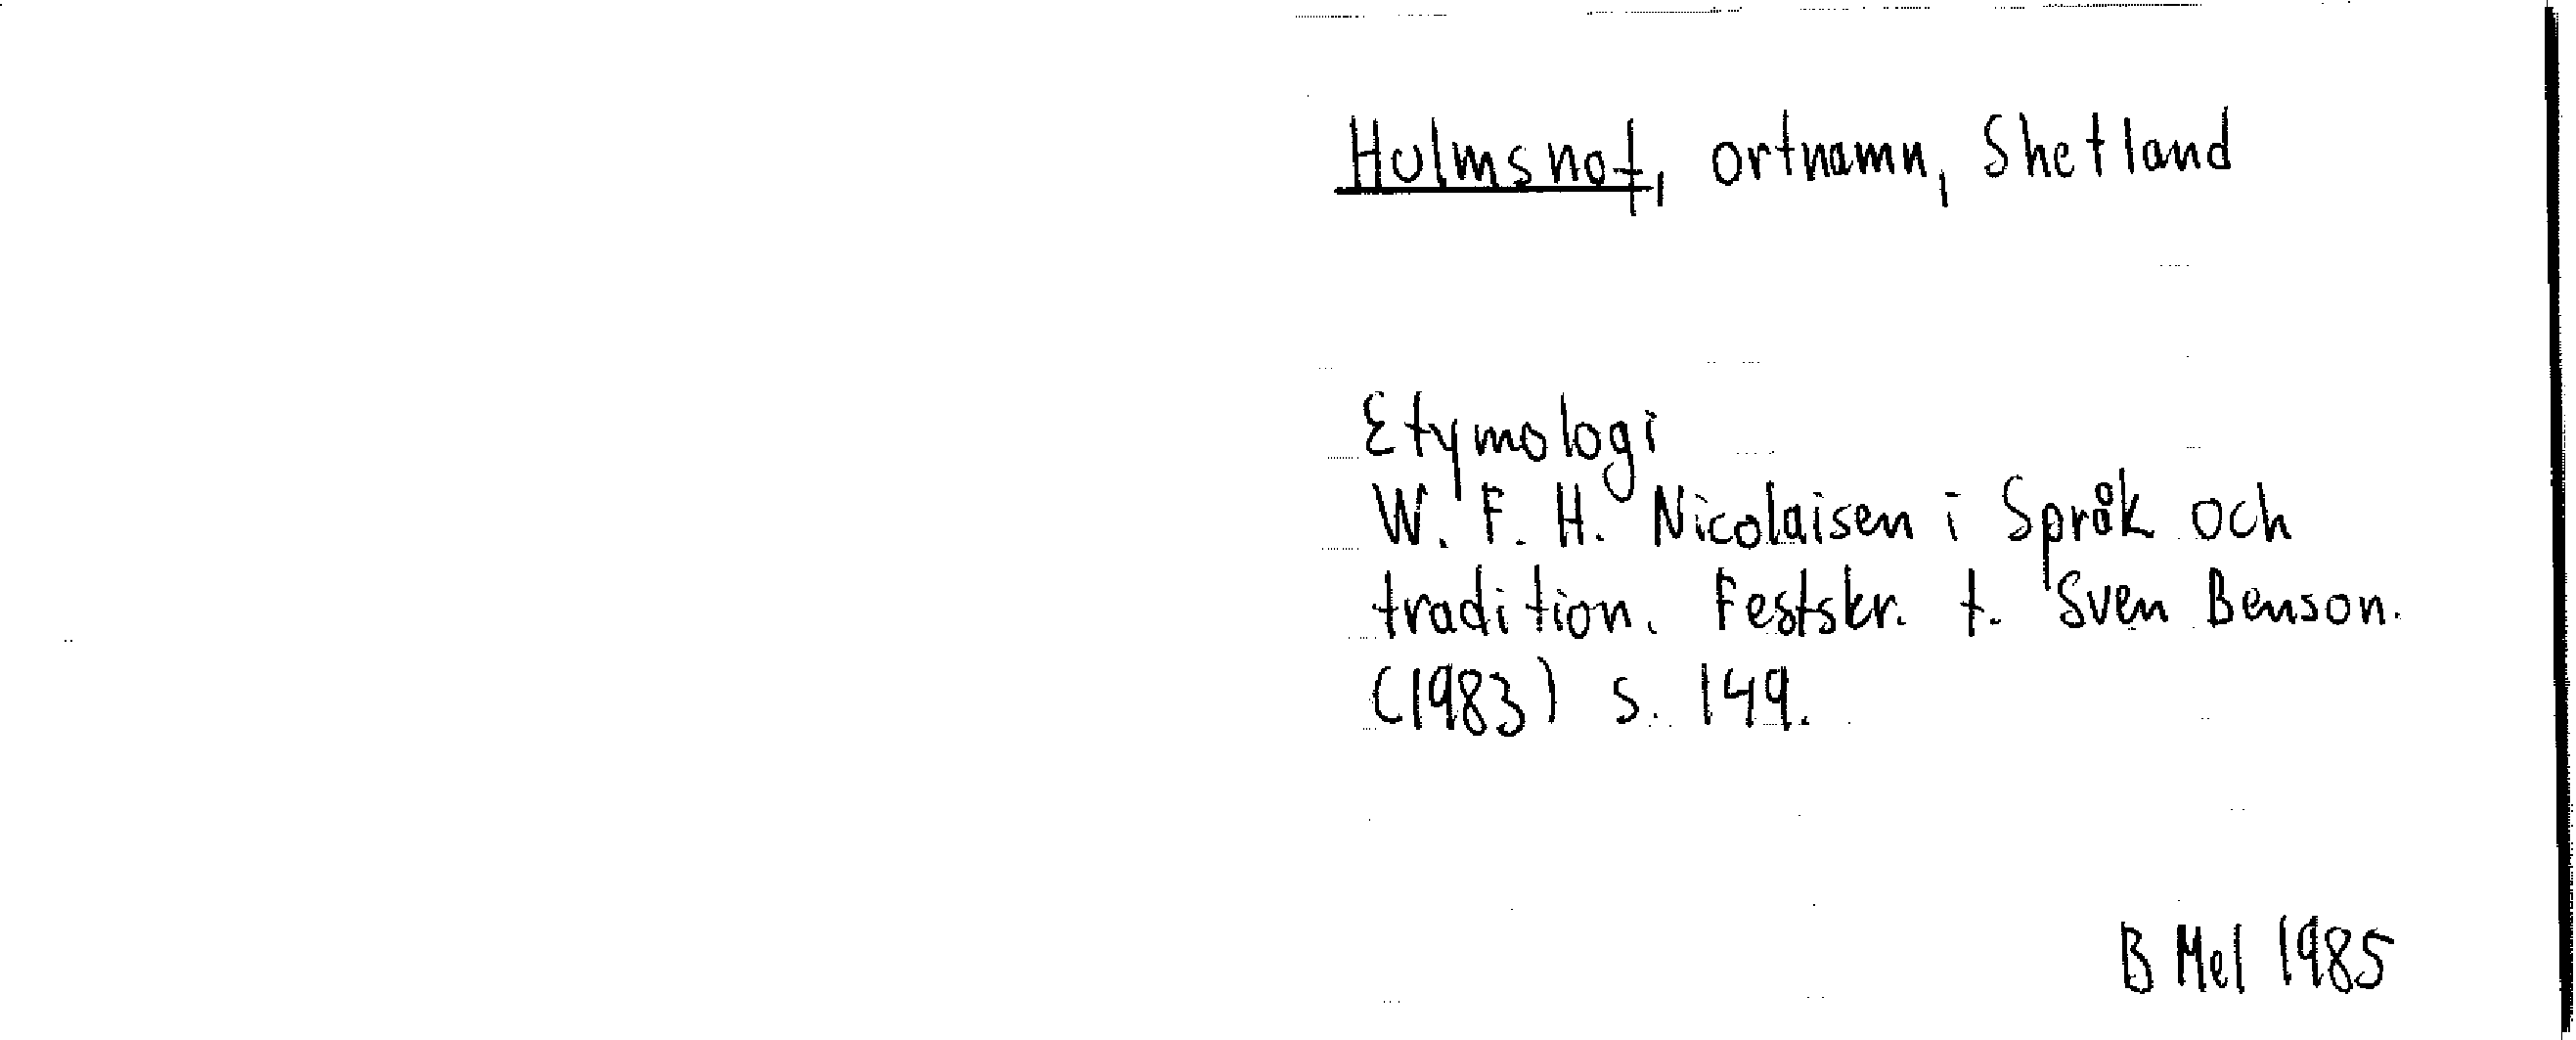 Hulmsnot, ortnamn, Shetland
Etymologi
W. F. H. Nicolaisen i Språk och
tradition. Festskr. t. Sven Benson.
(1983) s. 149.
B Mel 1985